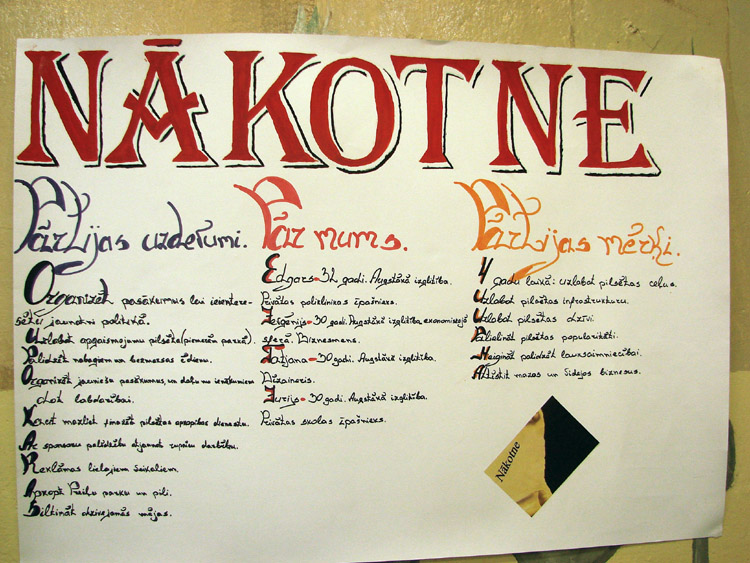 NĀKOTNE
Partijas uzdevumi.
Organizēt pasākumus lai ieintere-
sētu jaunatni politikā.
Uzlabot apgaismojumu pilsētā (piemēram parkā).
Palīdzēt nabagiem un bezmaksas ēdienu.
Organizēt jauniešu pasākumus, un daļu no ienākumiem
dot labdarībai.
Celt mazliet pilsētas apropības dienestu.
Ar sponsoru palīdzību atjaunot rūpnīcu darbību.
Reklāmas lielajiem veikaliem.
Apkopt parku un pili.
Siltināt dzīvojamās mājas.
Par mums.
Edgars - 32 gadi. Augstākā izglītība.
Privātās poliklīnikas īpašnieks.
Jevgēnijs - 30 gadi. Augstākā izglītība ekonomiskajā
sfērā. Biznesmens.
Tatjana - 30 gadi. Augstākā izglītība.
Dizainere.
Jurijs - 30 gadi. Augstākā izglītība.
Privātas skolas īpašnieks.
Partijas mērķi.
4 gadu laikā: uzlabot pilsētas ceļus.
Uzlabot pilsētas infrastruktūru.
Uzlabot pilsētas dzīvi.
Palielināt pilsētas popularitāti.
Mēģināt palīdzēt lauksaimniecībai.
Attīstīt mazos un vidējos biznesus.
Nākotne